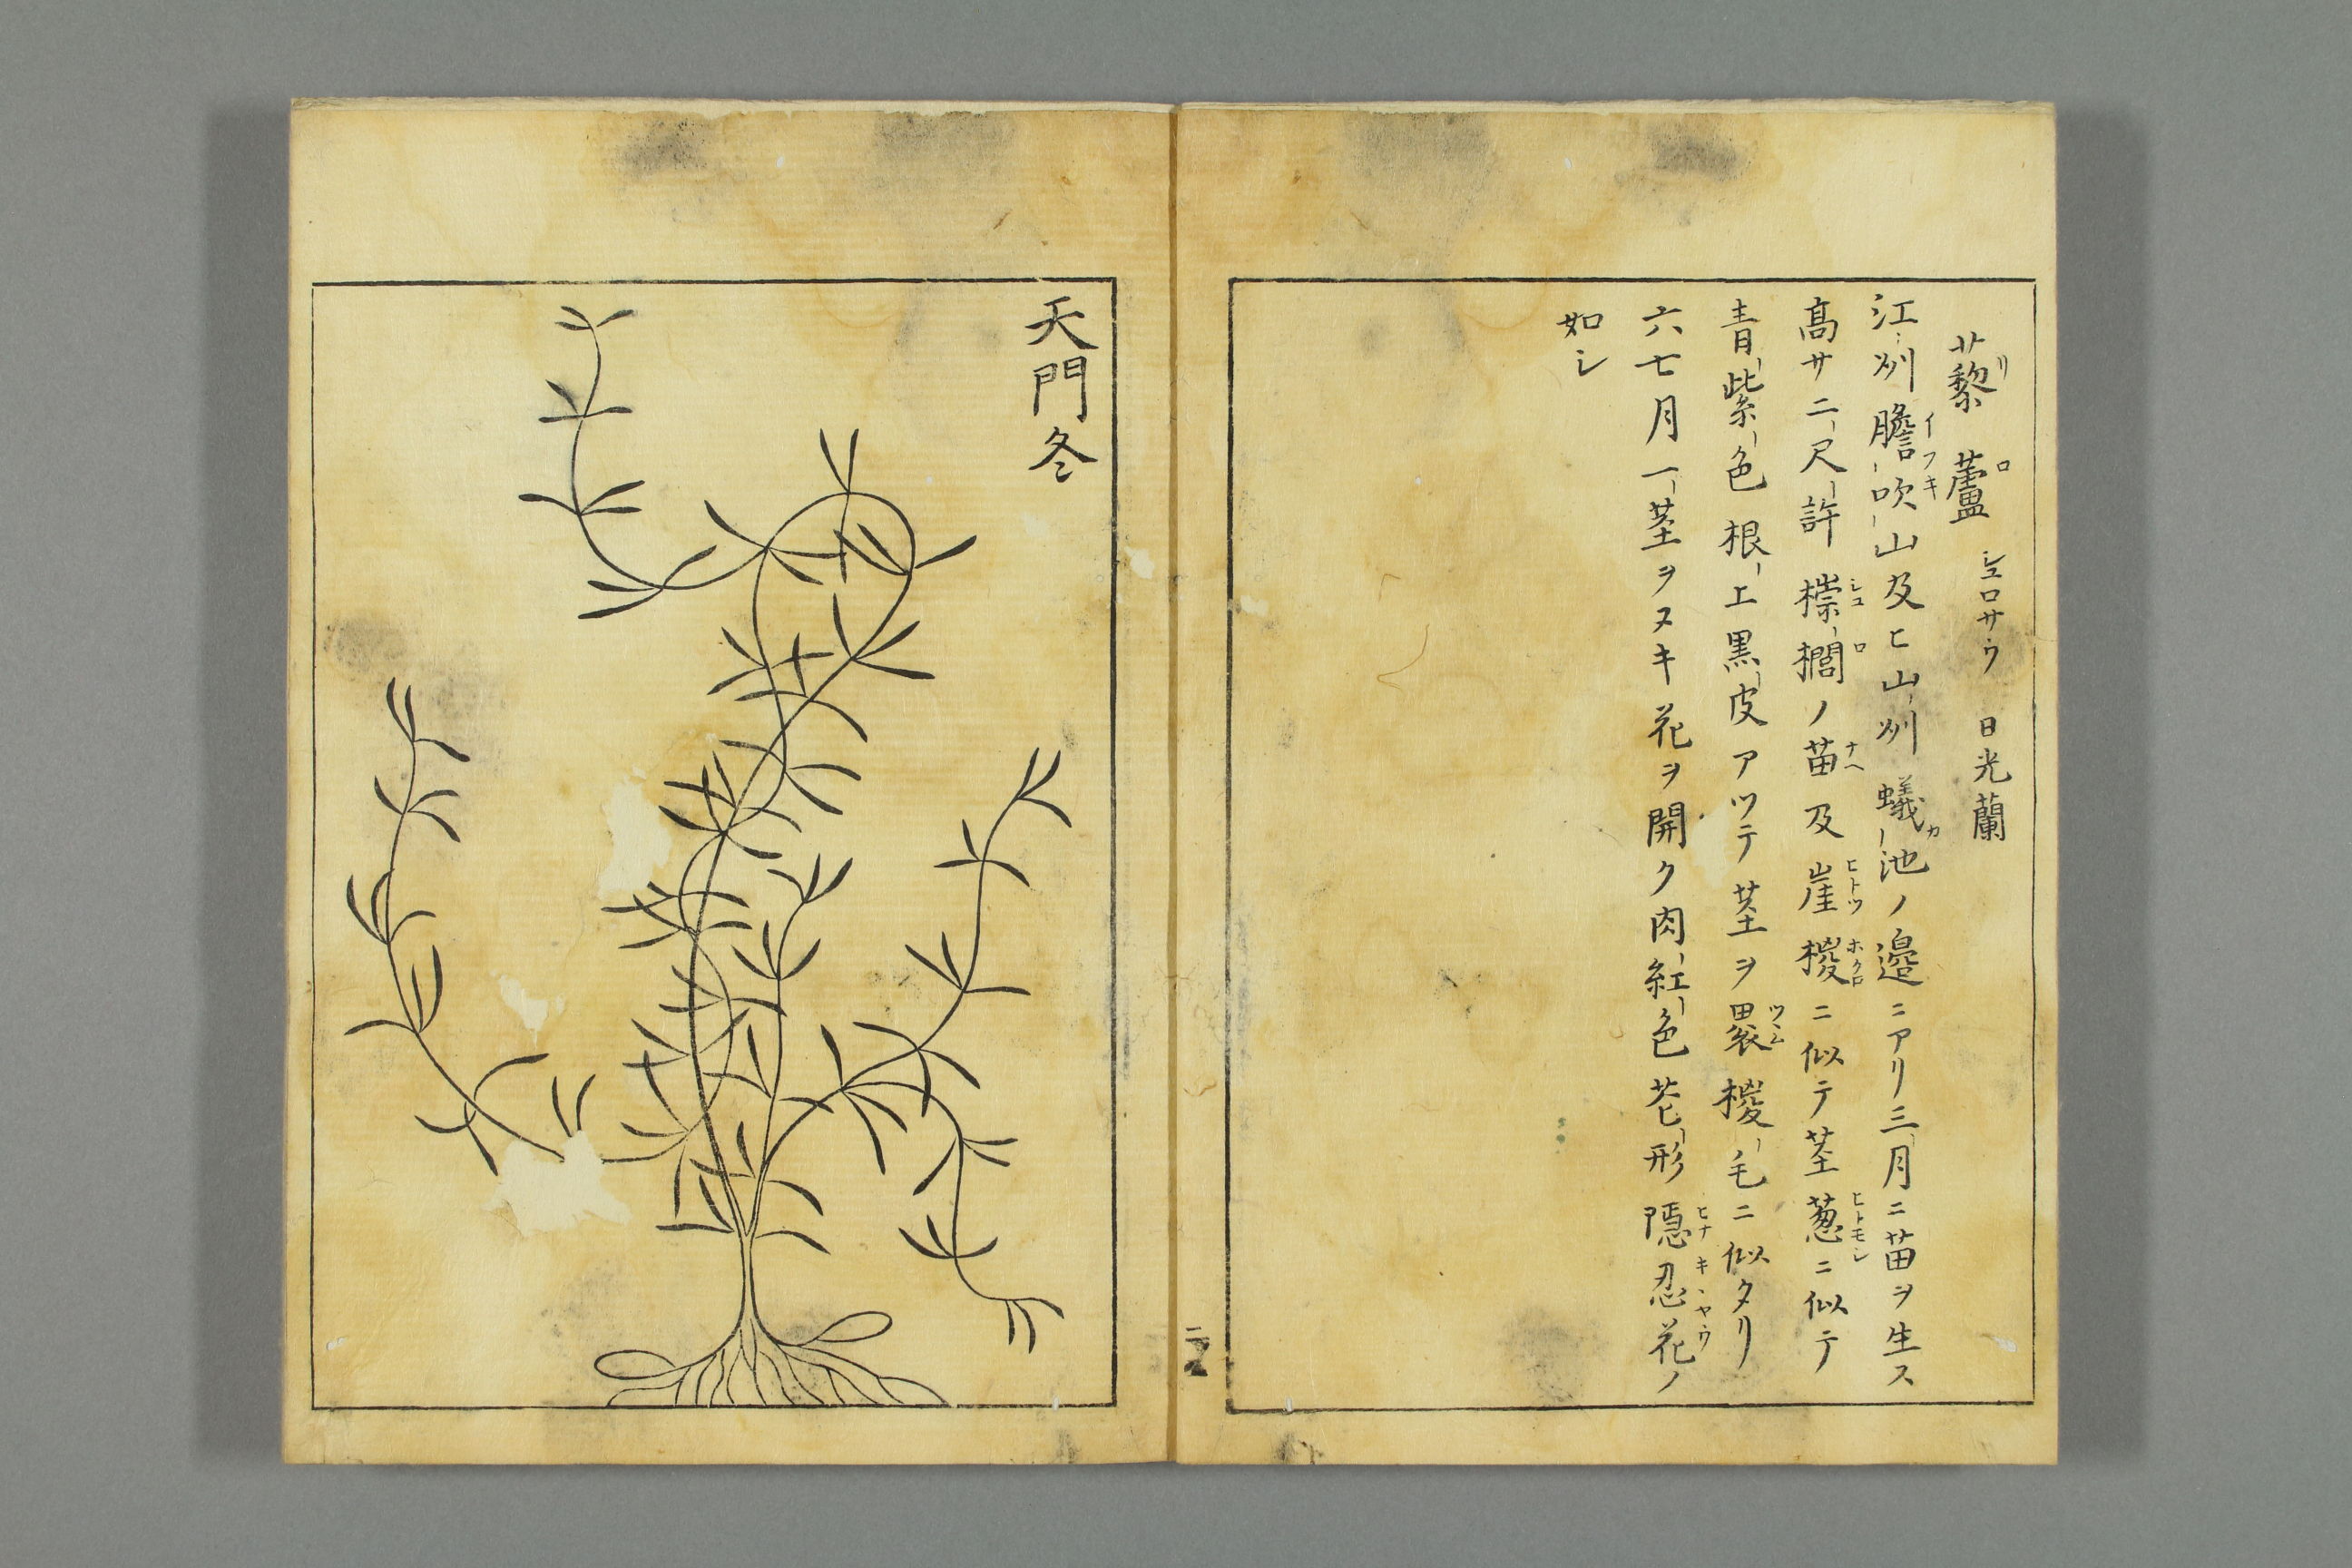 藜蘆 シュロサウ 日光蘭
江州膽吹山及ヒ山州蟻池ノ邉ニアリ三月ニ苗ヲ生ス
髙サ二尺許椶櫚ノ苗及崖椶ニ似テ茎葱ニ似テ
青紫色根上黒皮アツテ茎ヲ裹椶毛ニ似タリ
六七月一茎ヲヌキ花ヲ開ク肉紅色花形隱忍花ノ
如シ
天門冬